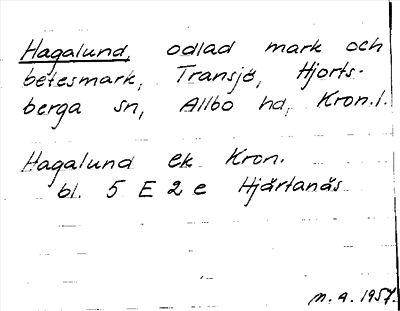 Hagalund, odlad mark och
betesmark, Transjö, Hjorts-
berga sn, Allbo hd, Kron.l.
Hagalund ek Kron.
bl. 5 E 2 e Hjärtanäs
M.A. 1957.